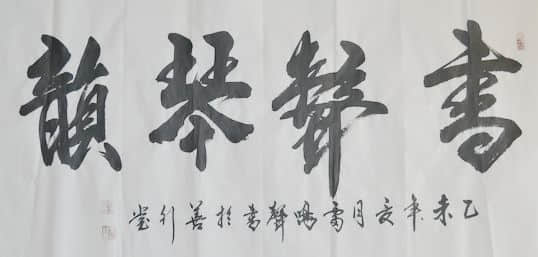 書聲琴韻
乙未年亥月雷鳴聲書於善行堂